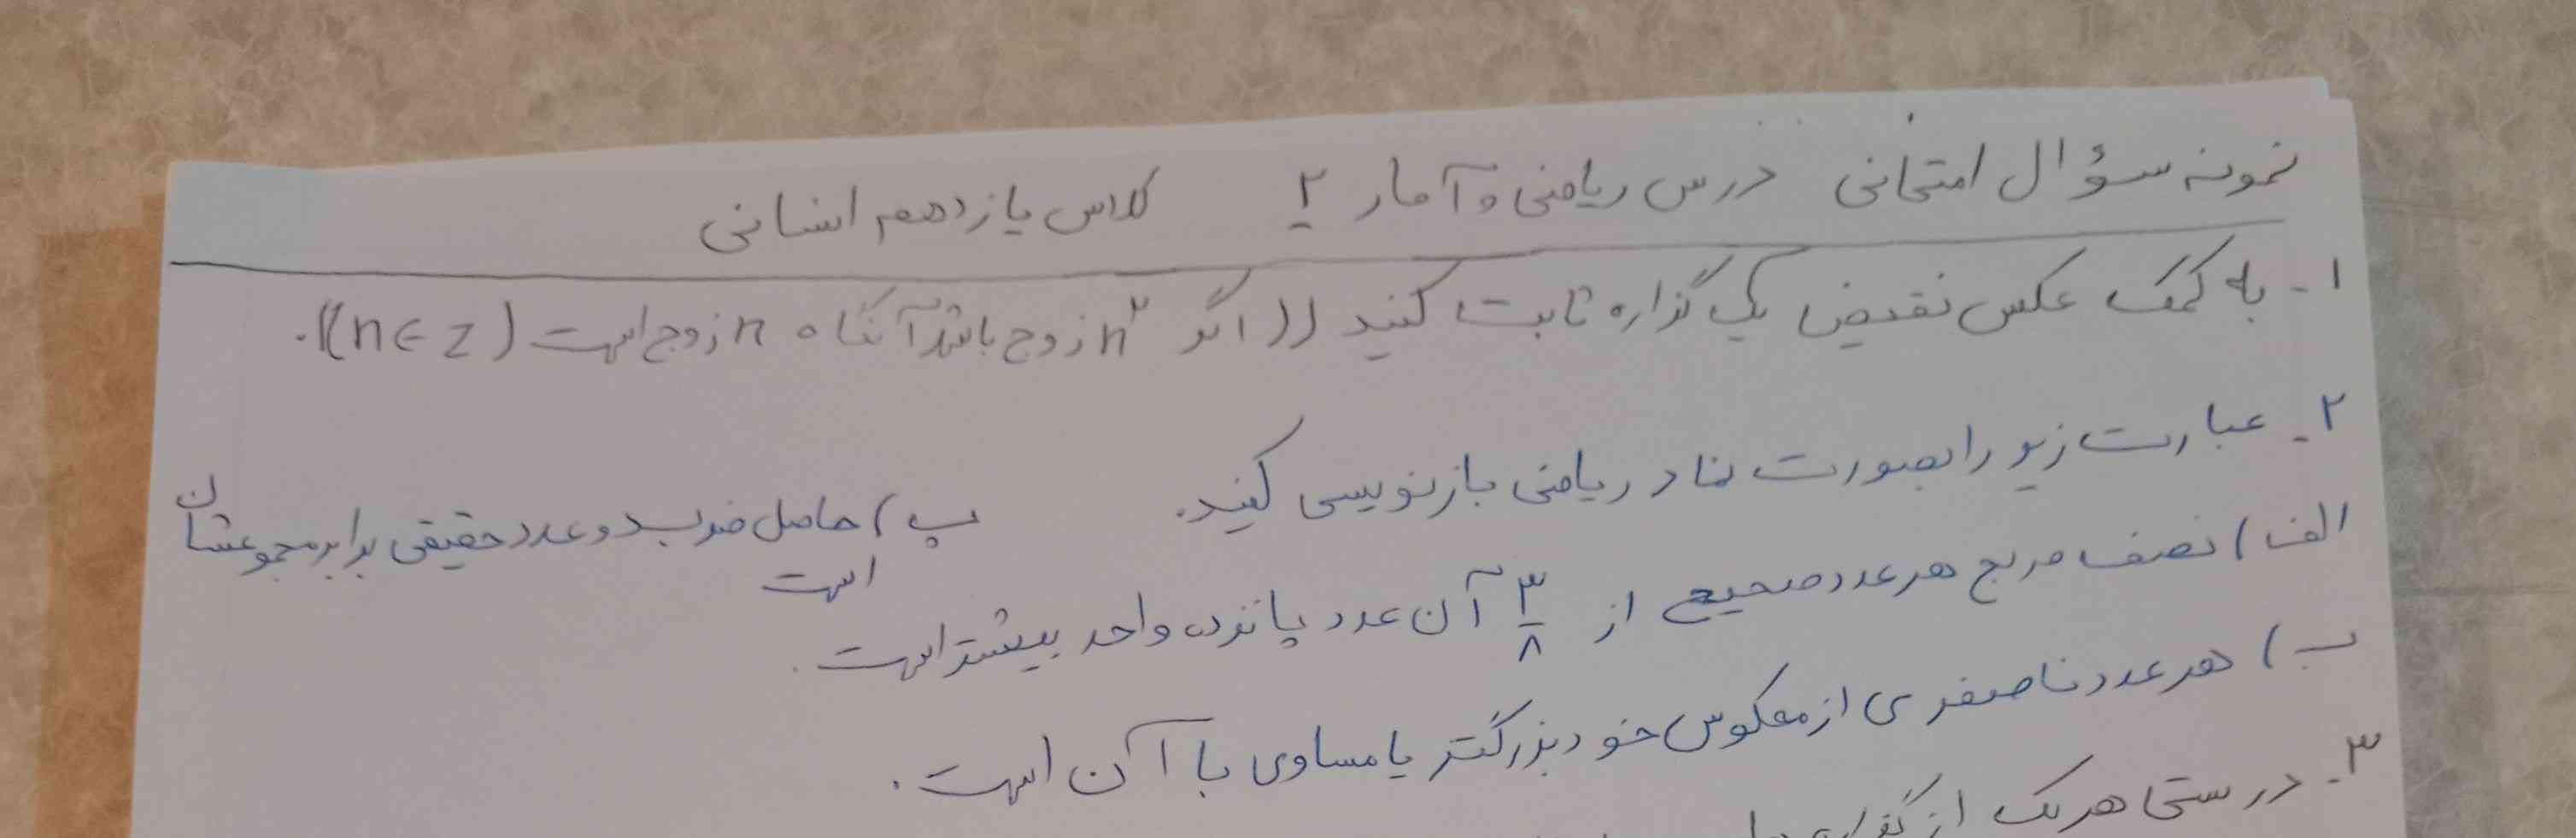 نمونه سؤال امتحانی درس ریاضی و آمار ۲ کلاس یازدهم انسانی
۱- به کمک عکس نقیض یک گزاره ثابت کنید ((اگر n² زوج باشد آنگاه n زوج است (n∈z))).
۲- عبارت زیر را بصورت نماد ریاضی بازنویسی کنید.
الف) نصف مربع هر عدد صحیح از ۳/۸ آن عدد پانزده واحد بیشتر است.
ب) هر عدد ناصفری از معکوس خود بزرگتر یا مساوی با آن است.
پ) حاصل ضرب دو عدد حقیقی برابر مجموعشان
است
۳- درستی هر یک از